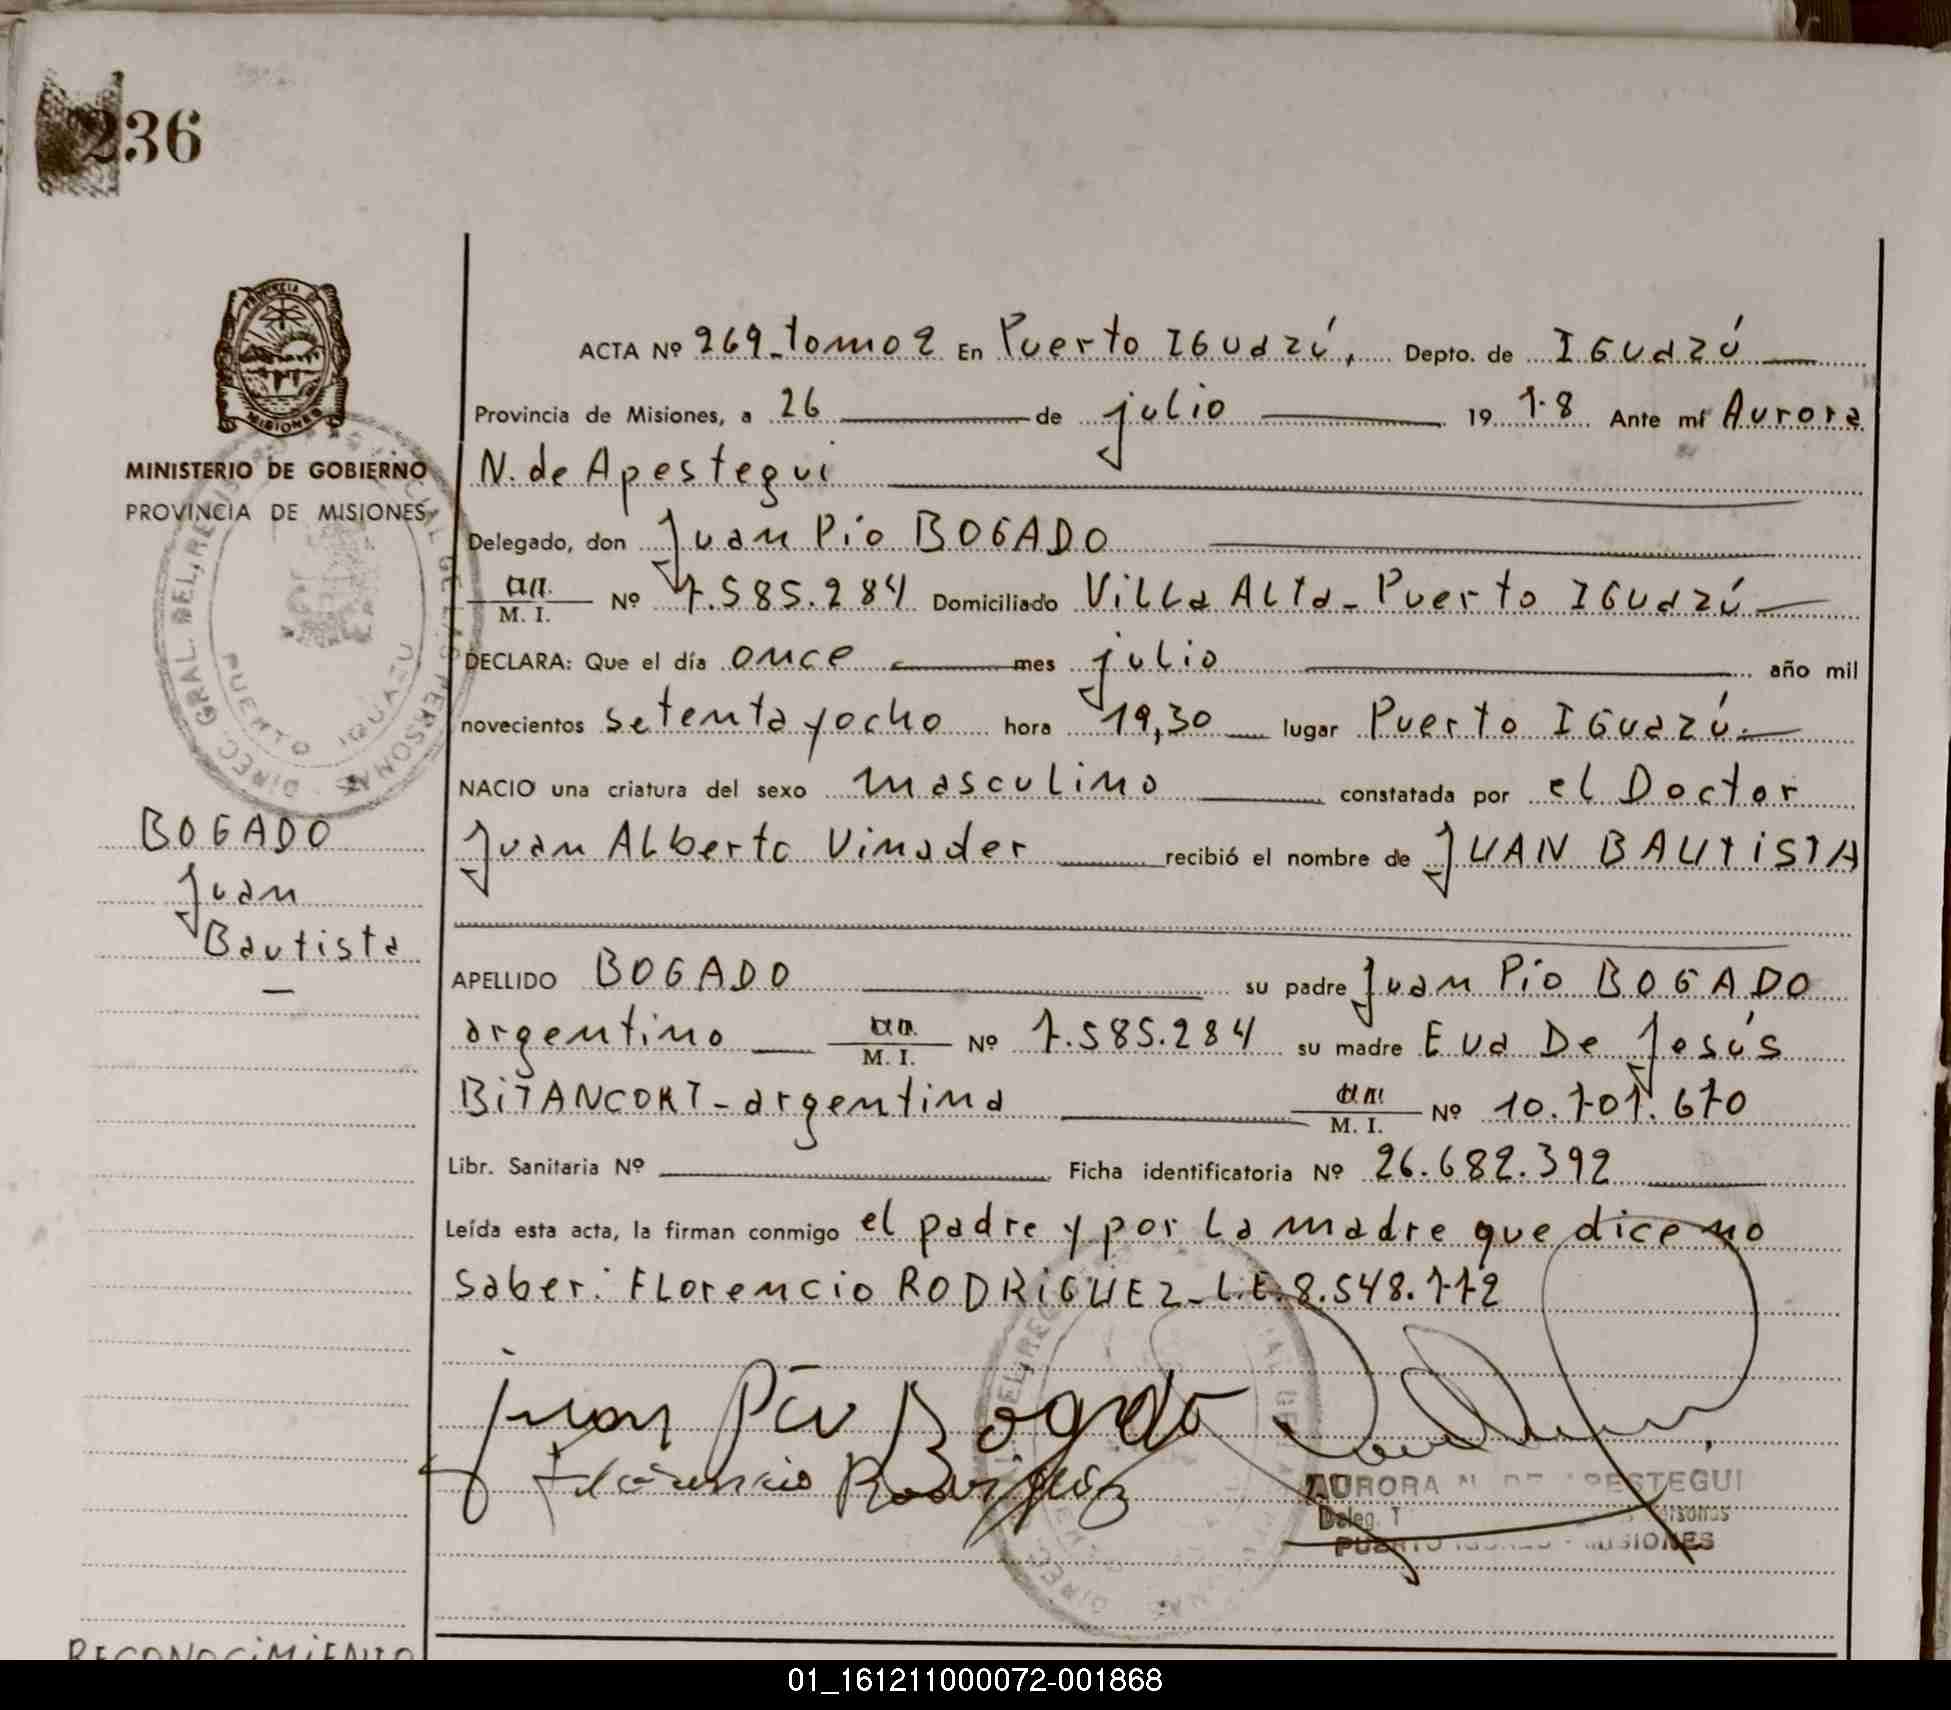 236
PROVINCIA DE
MISIONES
MINISTERIO DE GOBIERNO
PROVINCIA DE MISIONES
PUERTO IGUAZU
BOGADO
Juan
Bautista
ACTA Nº 269 - tomo 2 En Puerto IGuazú, Depto. de IGuazú
Provincia de Misiones, a 26 de julio 19 78 Ante mí Aurora
N. de Apestegui
Delegado, don Juan Pío BOGADO
M. I. Nº 7.585.284 Domiciliado Villa Alta - Puerto IGuazú
DECLARA: Que el día once mes julio año mil
novecientos setenta y ocho hora 19,30 lugar Puerto IGuazú.
NACIO una criatura del sexo masculino constatada por el Doctor
Juan Alberto Vinader recibió el nombre de JUAN BAUTISTA
APELLIDO BOGADO su padre Juan Pío BOGADO
argentino M. I. Nº 7.585.284 su madre Eva De Jesús
BITANCORT - argentina M. I. Nº 10.701.670
Libr. Sanitaria Nº Ficha identificatoria Nº 26.682.392
Leída esta acta, la firman conmigo el padre y por la madre que dice no
saber: Florencio RODRIGUEZ - L.E. 8.548.772
Juan Pío Bogado
Florencio Rodriguez
AURORA N. DE APESTEGUI
Deleg.
PUERTO IGUAZU - MISIONES
RECONOCIMIENTO
01_161211000072-001868